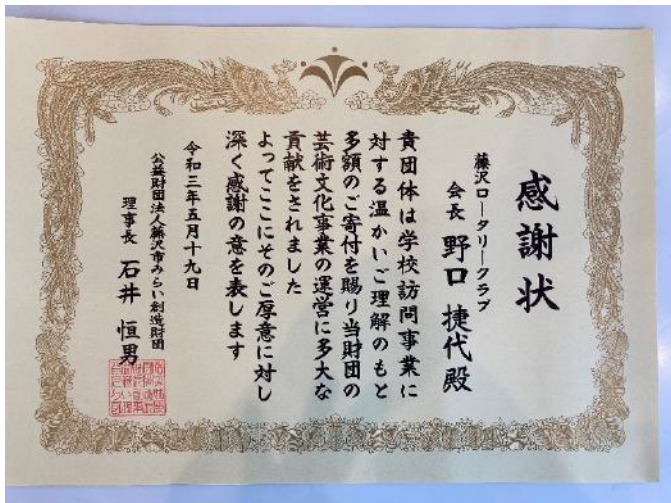 感謝状
藤沢ロータリークラブ
会長 野口 捷代殿
貴団体は学校訪問事業に
対する温かいご理解のもと
多額のご寄付を賜り当財団の
芸術文化事業の運営に多大な
貢献をされました
よってここにそのご厚意に対し
深く感謝の意を表します
令和三年五月十九日
公益財団法人藤沢市みらい創造財団
理事長 石井 恒男